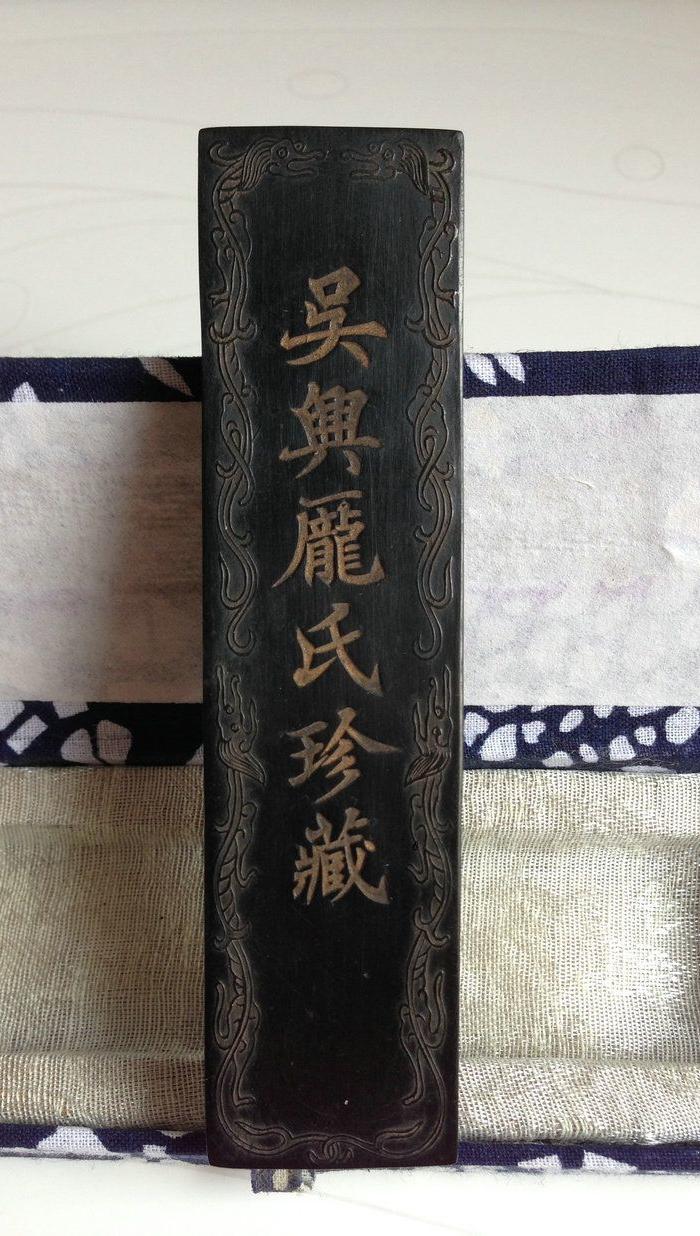 吳興龐氏珍藏